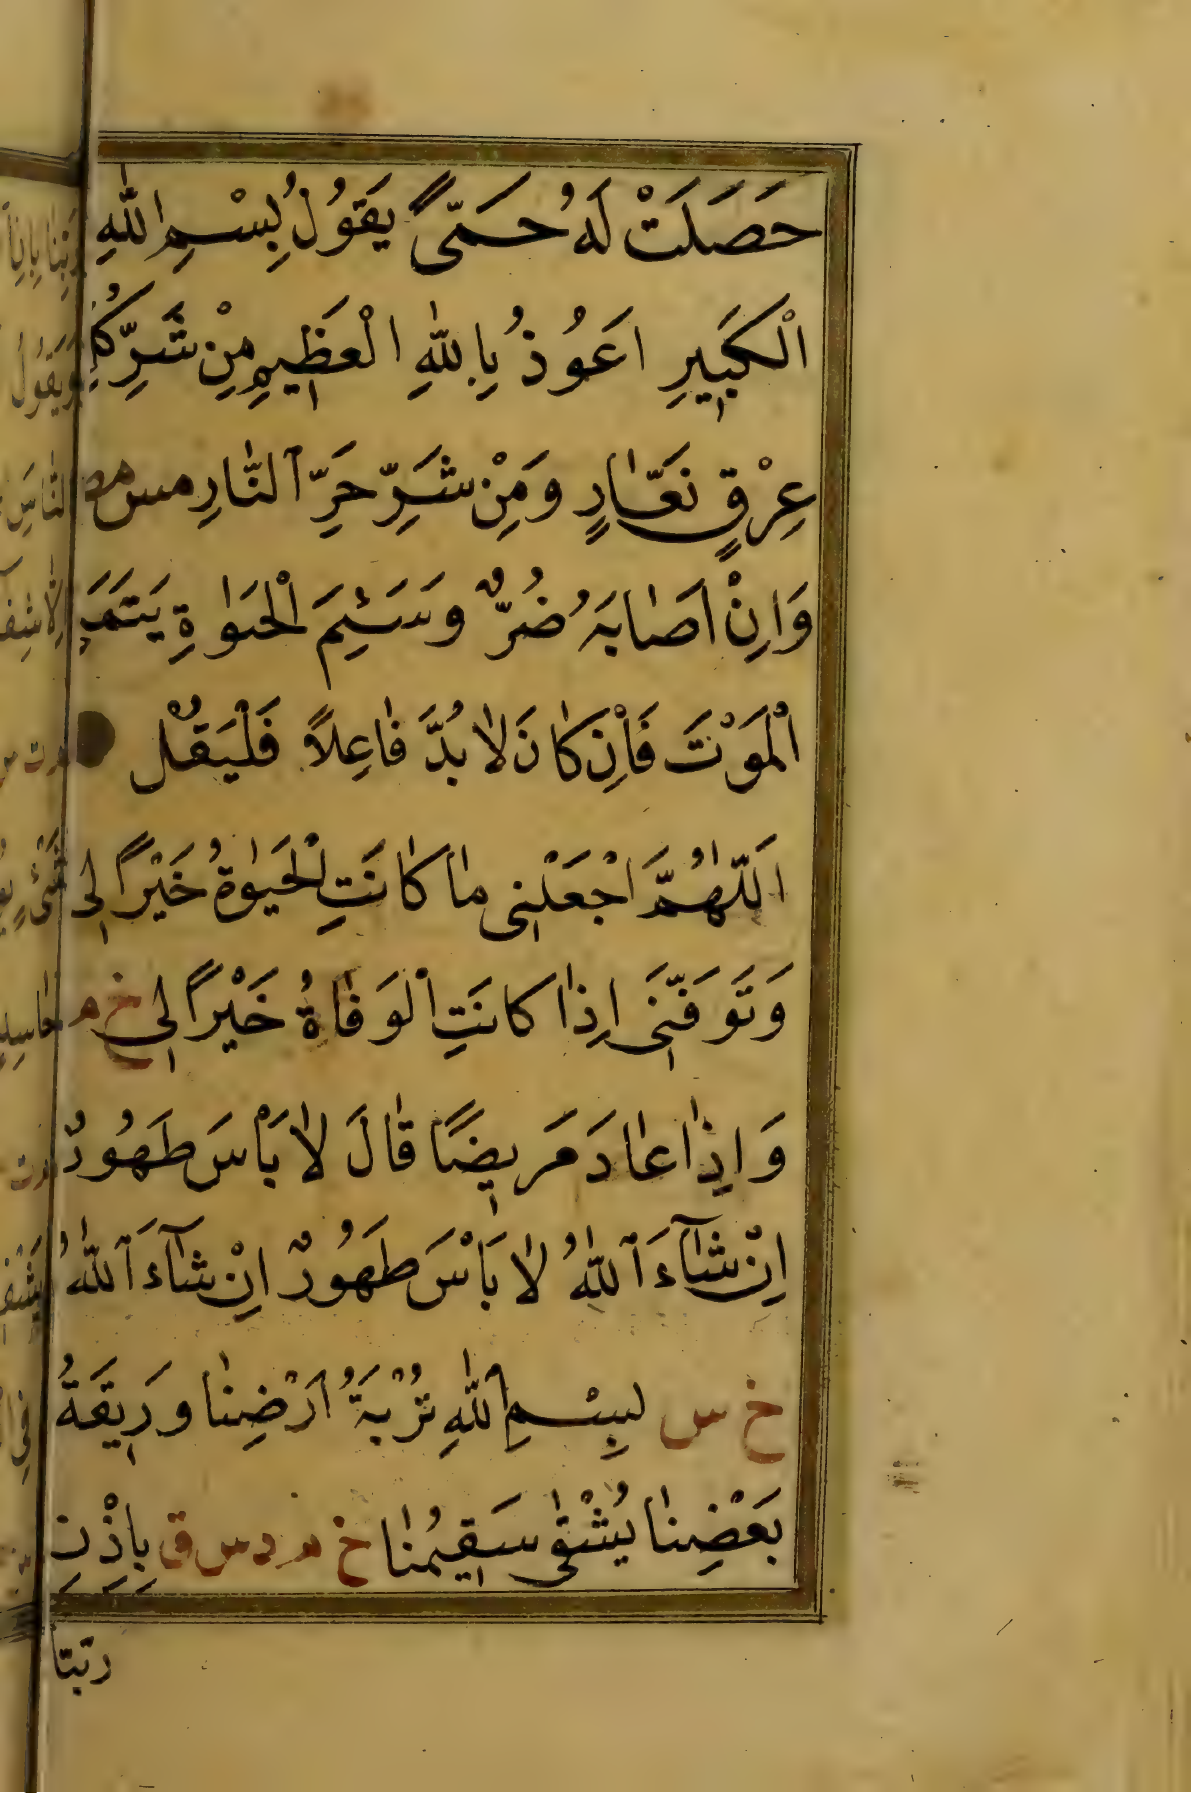 حَصَلَتْ لَهُ حُمّىً يَقُولُ بِسْمِ اللّٰهِ
الْكَبِيرِ اَعُوذُ بِاللّٰهِ الْعَظِيمِ مِنْ شَرِّ كُلِّ
عِرْقٍ نَعّارٍ وَمِنْ شَرِّ حَرِّ ٱلنّارِ مس مص
وَاِنْ اَصٰابَهُ ضُرٌّ وَسَئِمَ الْحَيٰوةِ يَتَمَنَّ
الْمَوْتَ فَاِنْ كٰانَ لاٰ بُدَّ فٰاعِلاً فَلْيَقُلْ
اَللّٰهُمَّ اَحْيِنِى مٰا كٰانَتِ الْحَيٰوةُ خَيْراً لِى
وَتَوَفَّنِى اِذٰا كٰانَتِ الْوَفٰاةُ خَيْراً لِى خ م
وَاِذٰا عٰادَ مَرِيضًا قٰالَ لاٰ بَاْسَ طَهُورٌ
اِنْ شٰآءَ ٱللّٰهُ لاٰ بَاْسَ طَهُورٌ اِنْ شٰآءَ ٱللّٰهُ
خ س بِسْمِ اللّٰهِ تُرْبَةُ اَرْضِنٰا وَرِيقَةُ
بَعْضِنٰا يُشْفٰى سَقِيمُنٰا خ م د س ق بِاِذْنِ
ربّنا